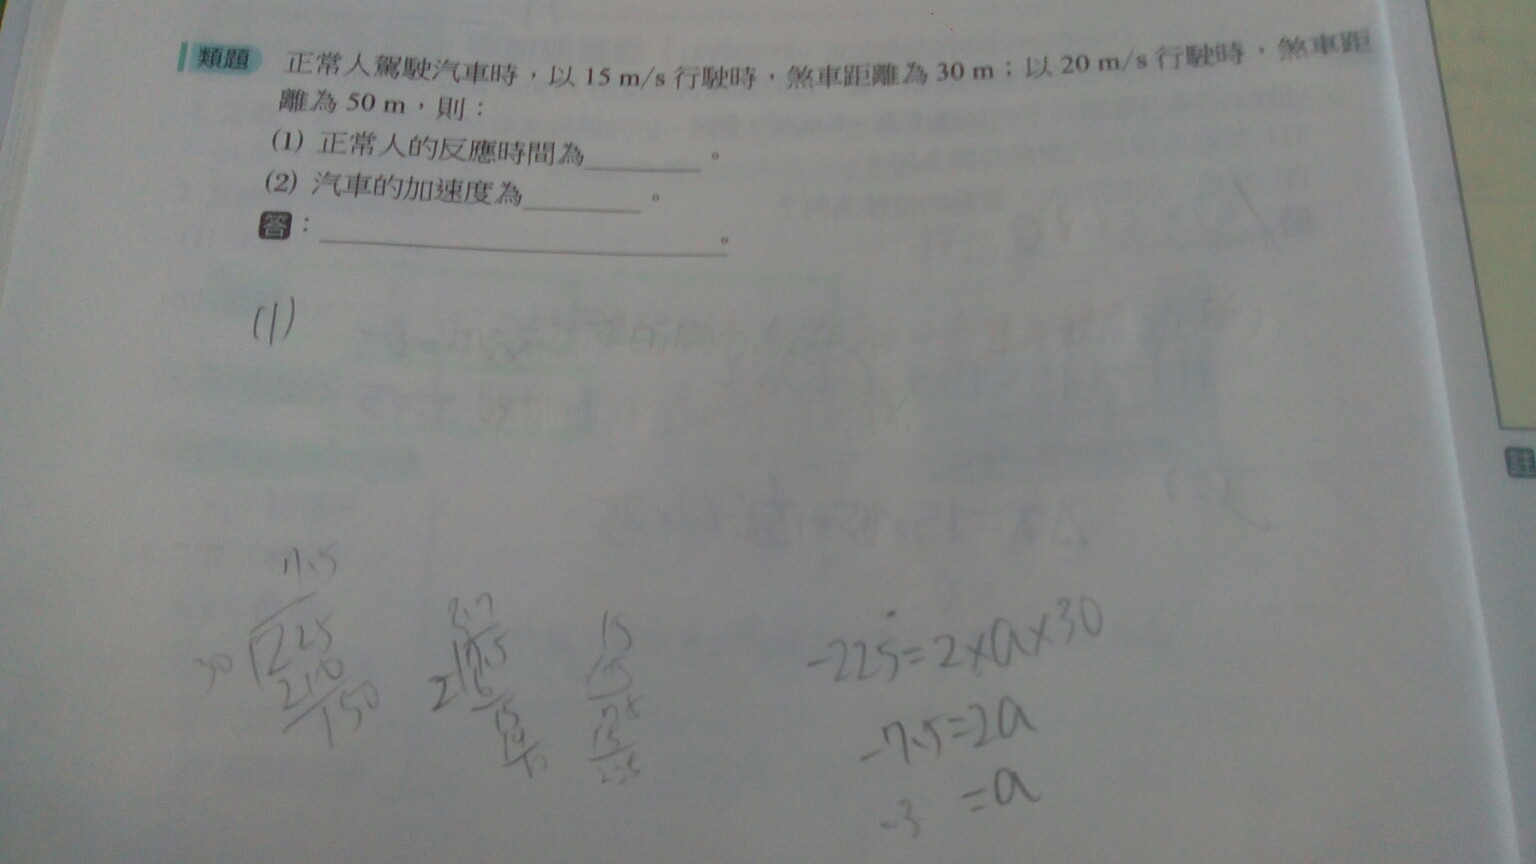 類題 正常人駕駛汽車時，以 15 m/s 行駛時，煞車距離為 30 m；以 20 m/s 行駛時，煞車距
離為 50 m，則：
(1) 正常人的反應時間為________。
(2) 汽車的加速度為________。
答：________。
(1)
7.5
30 225
210
150
3.7
2 7.5
6
15
14
15
15
75
15
225
-225=2×a×30
-7.5=2a
-3 =a
註